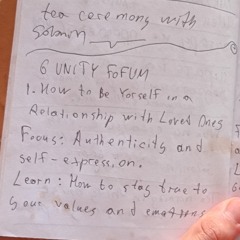 tea ceremony with
6 UNITY FOFUM
1. How to Be Yorself in a
Relationship with Loved Ones
Focus: Authenticity and
self-expression.
Learn: How to stay true to
your values and emotions